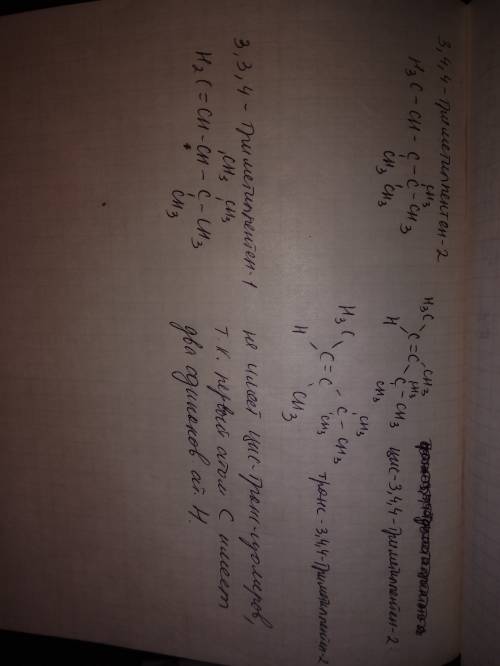 3,4,4-триметилпентен-2
CH3
H3C-CH-C-C-CH3
CH3 CH3
H3C CH3
C=C CH3
H C-CH3
CH3
цис-3,4,4-триметилпентен-2
H3C CH3
C=C C-CH3
H CH3
CH3
транс-3,4,4-триметилпентен-2
3,3,4-триметилпентен-1
CH3 CH3
H2C=CH-CH-C-CH3
CH3
не имеет цис-транс-изомеров,
т.к. первый атом C имеет
два одинаков. ат. H.